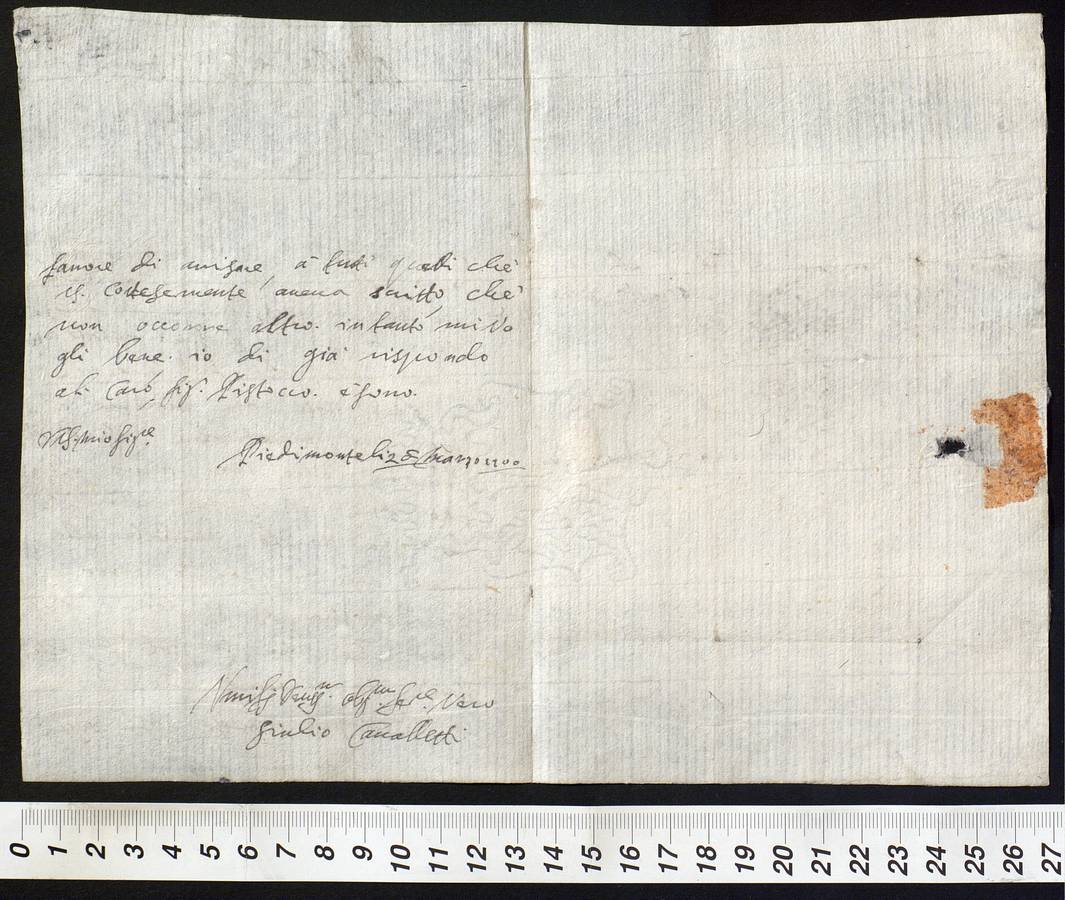 fauore di auisare, à tutti quelli chè
V.S. Cortesemente aueua scritto, chè
non occorre altro. intanto mi Vo
gli bene. io di già rispondo
al Caro, Sig. Pistocco. è sono.
VS. mio Sig.re
Piedimonte li 28 Marzo 1700
Giulio Cavalletti
0 1 2 3 4 5 6 7 8 9 10 11 12 13 14 15 16 17 18 19 20 21 22 23 24 25 26 27